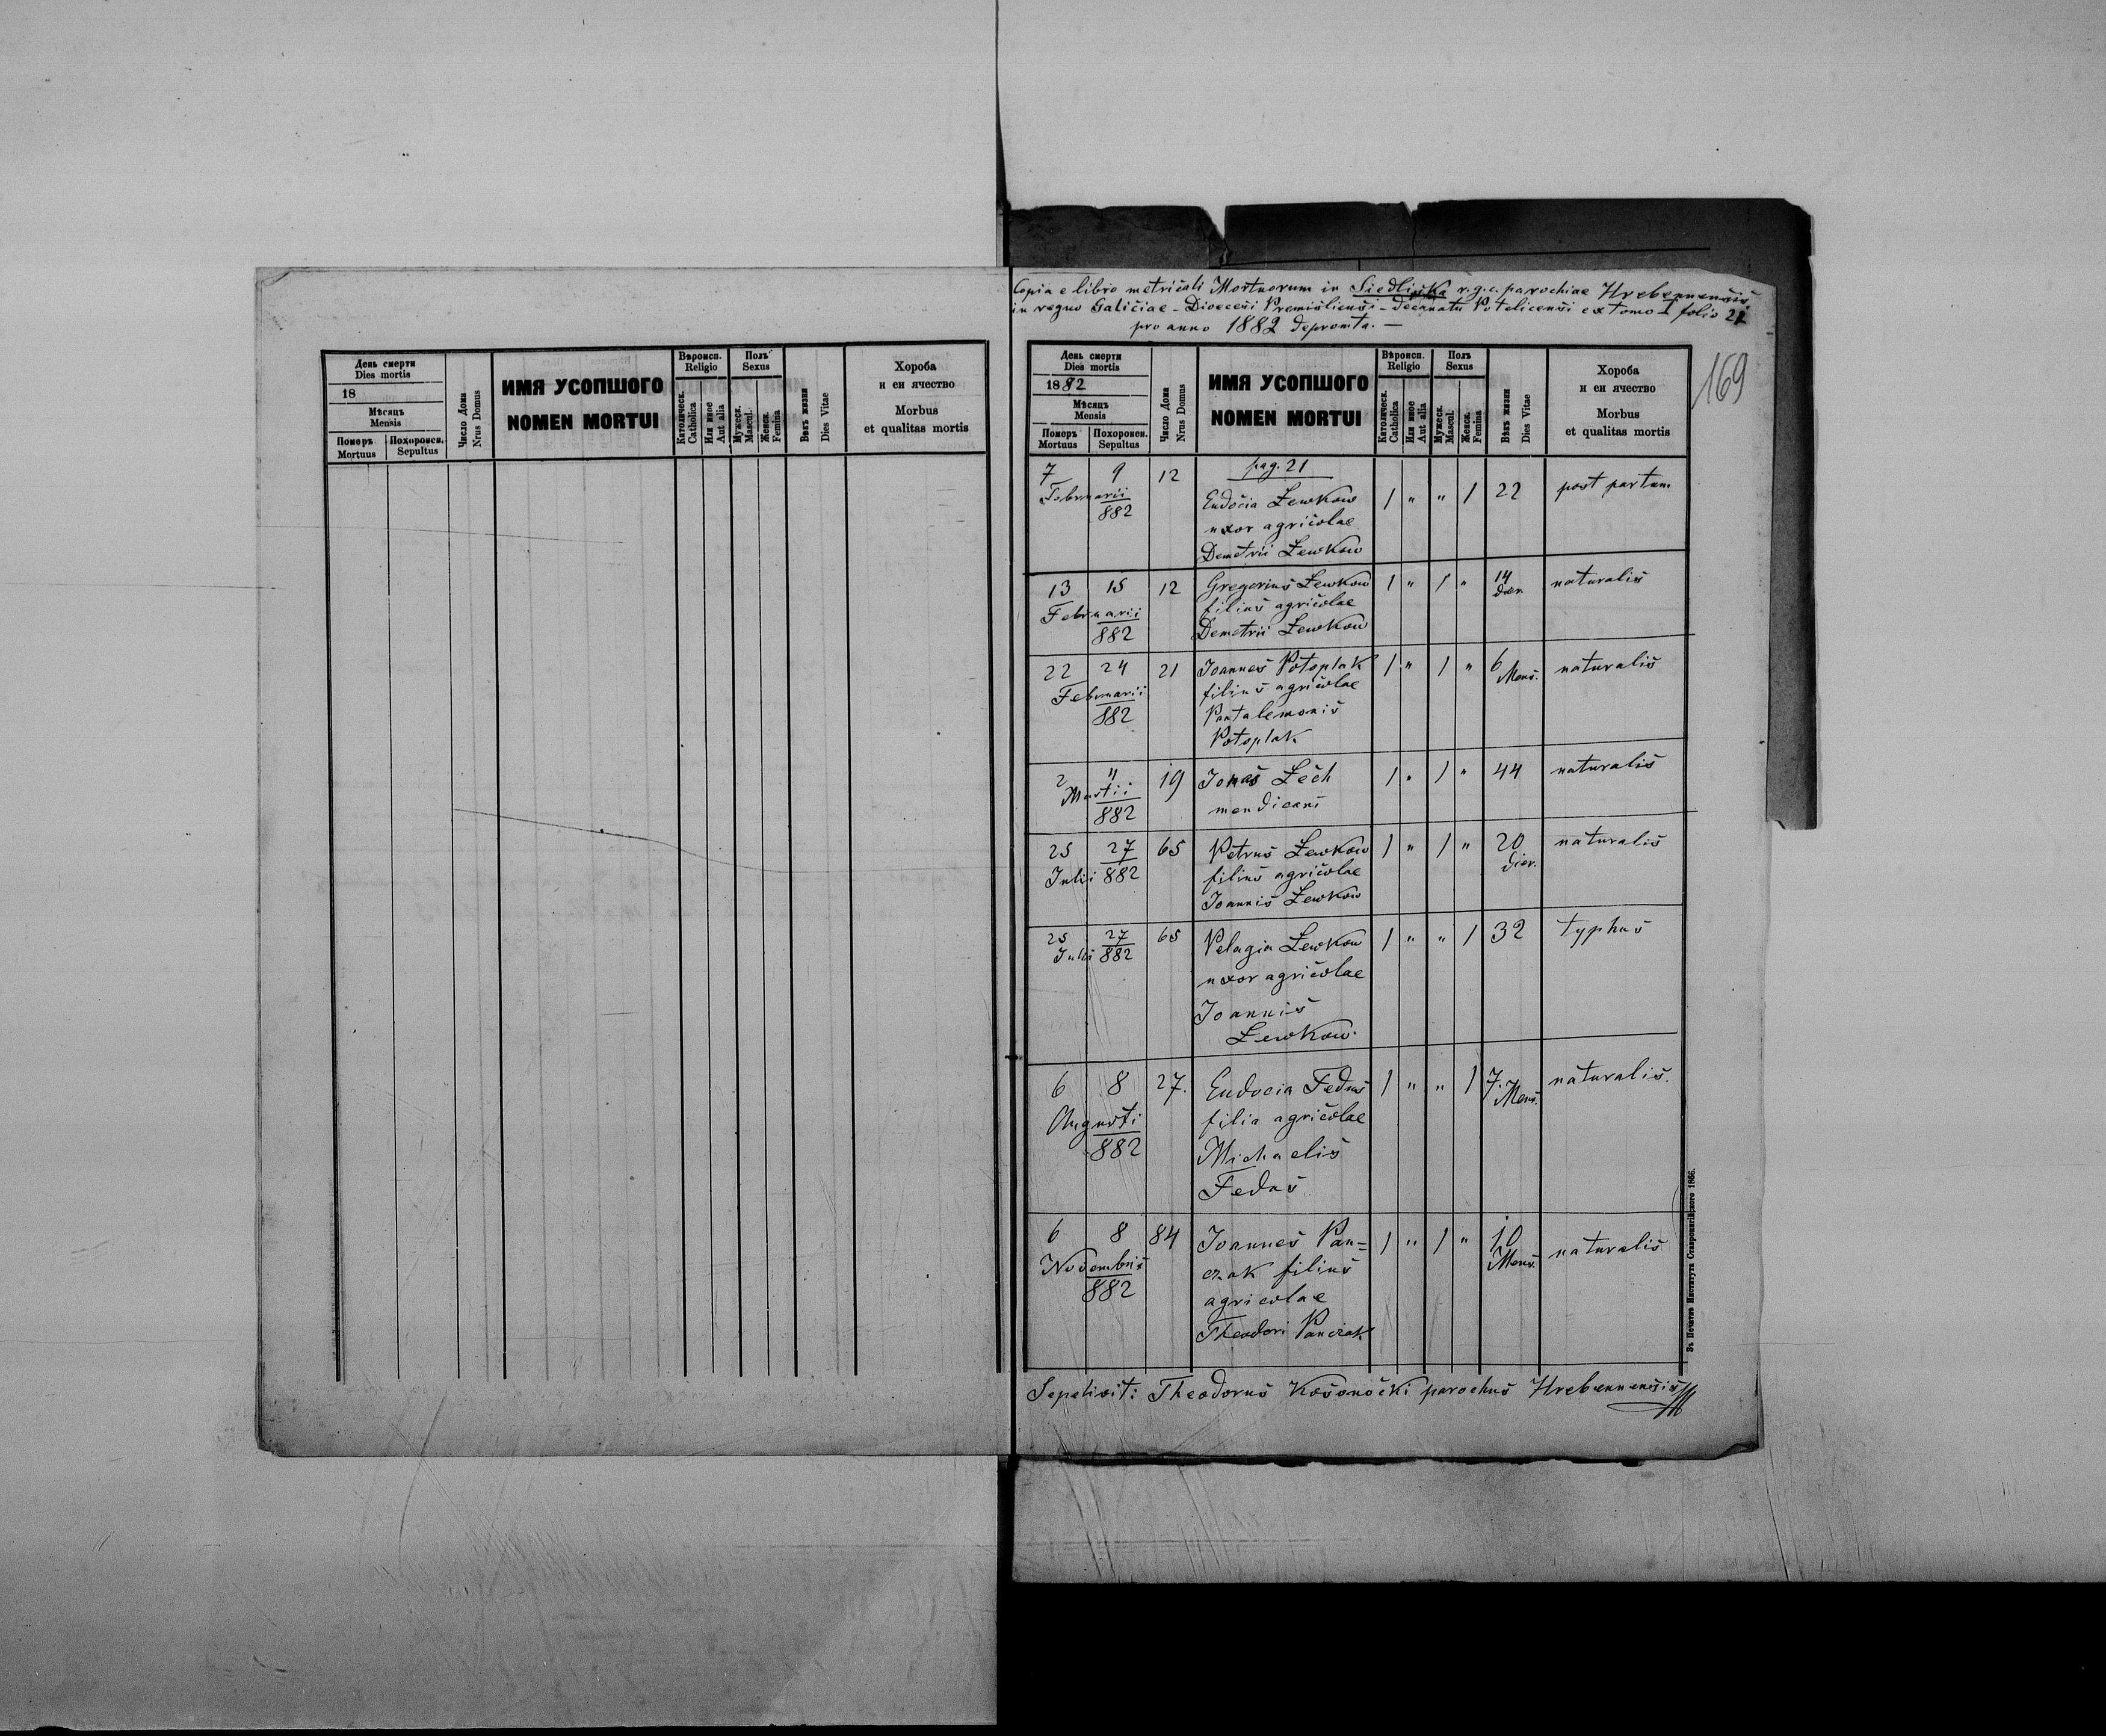 Copia e libro metricali Mortuorum in Siedliska r.g.c. parochiae Hrebennensis
in regno Galiciae - Dioecesi Premisliensi - Decanatu Potelicensi ex tomo I folio 21
pro anno 1882 depromta. —
169
День смерти
Dies mortis
18
Мѣсяць
Mensis
Померъ
Mortuus
Похоронен.
Sepultus
Число Дома
Nrus Domus
ИМЯ УСОПШОГО
NOMEN MORTUI
Вѣроисп.
Religio
Католическ.
Catholica
Или иное
Aut alia
Полъ
Sexus
Мужеск.
Mascul.
Женск.
Femina
Вѣкъ жизни
Dies Vitae
Хороба
и еи ячество
Morbus
et qualitas mortis
День смерти
Dies mortis
1882
Мѣсяць
Mensis
Померъ
Mortuus
Похоронен.
Sepultus
Число Дома
Nrus Domus
ИМЯ УСОПШОГО
NOMEN MORTUI
Вѣроисп.
Religio
Католическ.
Catholica
Или иное
Aut alia
Полъ
Sexus
Мужеск.
Mascul.
Женск.
Femina
Вѣкъ жизни
Dies Vitae
Хороба
и еи ячество
Morbus
et qualitas mortis
pag. 21
7 9 12 Eudocia Lewkow 1 " " 1 22 post partum
Februarii
882
uxor agricolae
Demetrii Lewkow
13 15 12 Gregorius Lewkow 1 " 1 " 14 dier. naturalis
Februarii
882
filius agricolae
Demetrii Lewkow
22 24 21 Joannes Potoplak 1 " 1 " 6 Mens. naturalis
Februarii
882
filius agricolae
Pantalemonis
Potoplak
2 4 19 Jonas Lech 1 " 1 " 44 naturalis
Martii
882
mendicans
25 27 65 Petrus Lewkow 1 " 1 " 20 dier. naturalis
Julii 882
filius agricolae
Joannis Lewkow
25 27 65 Pelagia Lewkow 1 " " 1 32 typhus
Julii 882
uxor agricolae
Joannis
Lewkow.
6 8 27. Eudocia Fedus 1 " " 1 7. Mens. naturalis.
Augusti
882
filia agricolae
Michaelis
Fedus
6 8 84 Joannes Pan= 1 " 1 " 10 Mens. naturalis
Novembris
882
czak filius
agricolae
Theodori Panczak
Sepelivit: Theodorus Kosonocki parochus Hrebennensis
Зъ Печатнѣ Института Ставропигійского 1866.